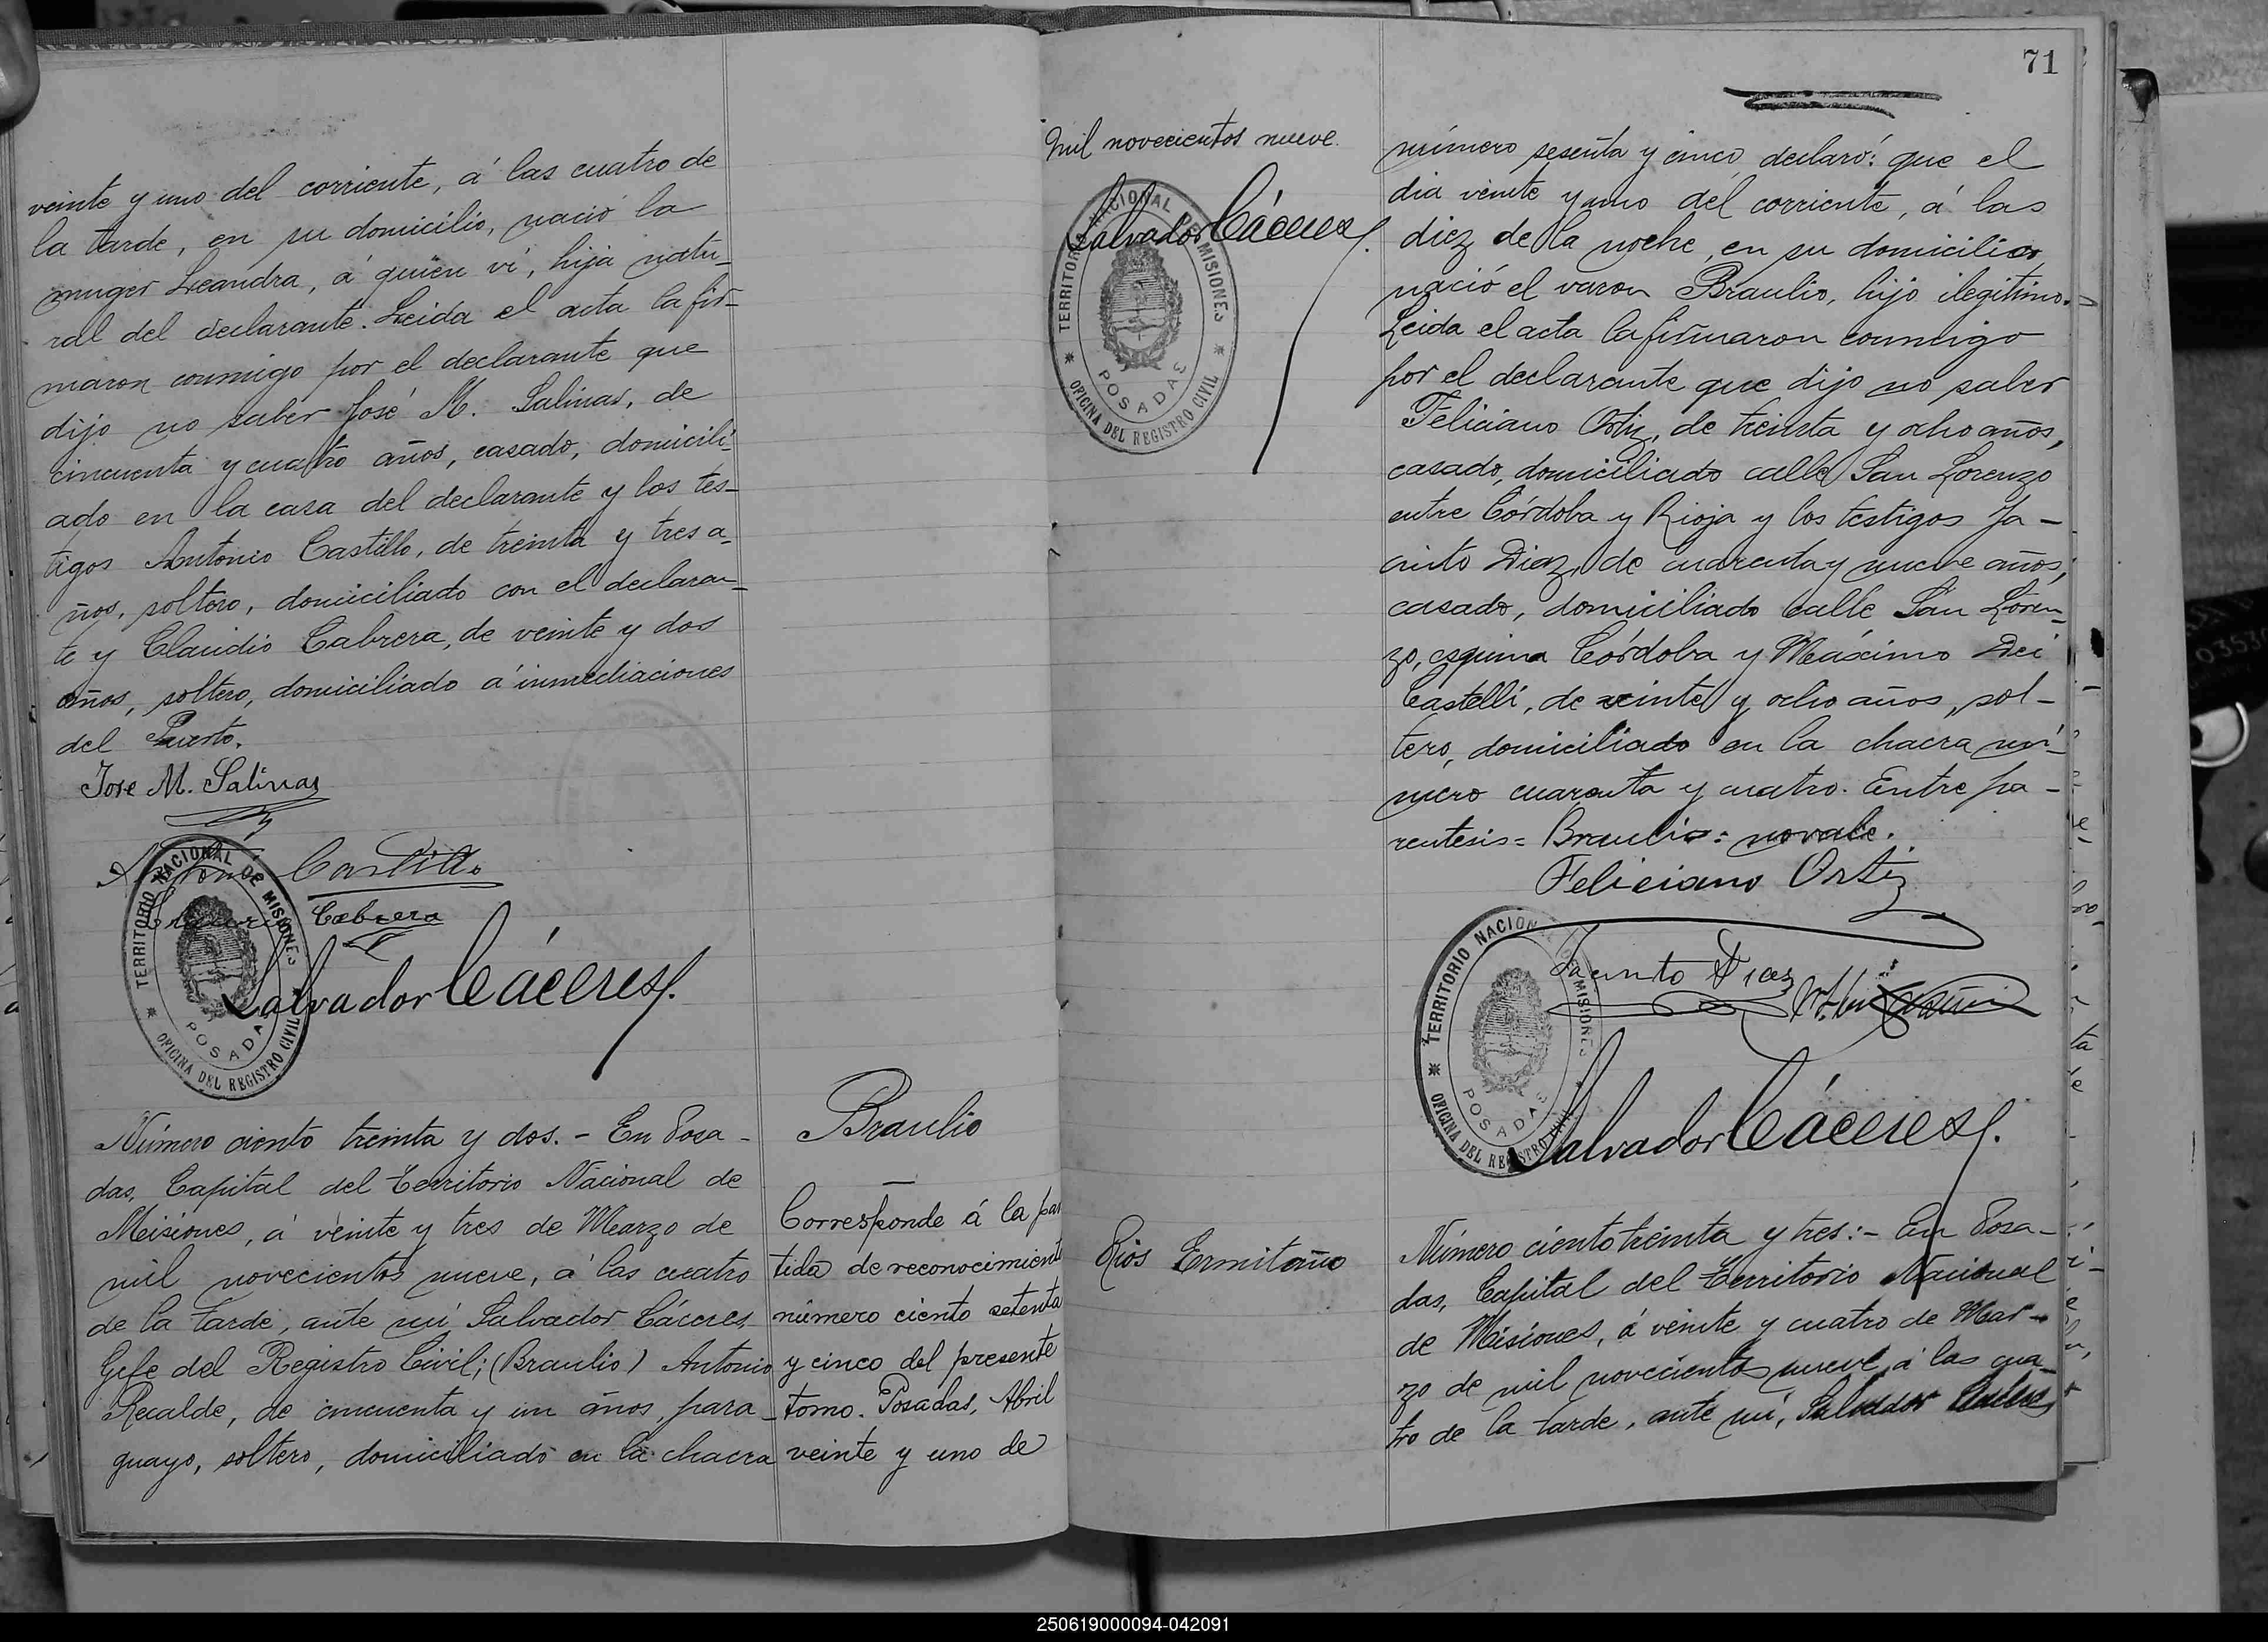 veinte y uno del corriente, á las cuatro de
la tarde, en su domicilio, nació la
muger Leandra, á quien vi, hija natu-
ral del declarante. Leida el acta la fir-
maron conmigo por el declarante que
dijo no saber José M. Salinas, de
cincuenta y cuatro años, casado, domicili-
ado en la casa del declarante y los tes-
tigos Antonio Castillo, de treinta y tres a-
ños, soltero, domiciliado con el declaran-
te y Claudio Cabrera, de veinte y dos
años, soltero, domiciliado á inmediaciones
del Puerto.
Jose M. Salinas
Antonio Castillo
Claudio Cabrera
TERRITORIO NACIONAL DE MISIONES
POSADAS
OFICINA DEL REGISTRO CIVIL
Salvador Cáceres
Número ciento treinta y dos. - En Posa-
das, Capital del Territorio Nacional de
Misiones, á veinte y tres de Marzo de
mil novecientos nueve, á las cuatro
de la tarde, ante mí Salvador Cáceres,
Gefe del Registro Civil; (Braulio) Antonio
Recalde, de cincuenta y un años, para-
guayo, soltero, domiciliado en la chacra
Braulio
Corresponde á la par
tida de reconocimiento
número ciento setenta
y cinco del presente
tomo. Posadas, Abril
veinte y uno de
mil novecientos nueve.
Salvador Cáceres
TERRITORIO NACIONAL DE MISIONES
POSADAS
OFICINA DEL REGISTRO CIVIL
71
número sesenta y cinco declaró: que el
dia veinte y uno del corriente, á las
diez de la noche, en su domicilio,
nació el varon Braulio, hijo ilegitimo.
Leida el acta la firmaron conmigo
por el declarante que dijo no saber
Feliciano Ortiz, de treinta y ocho años,
casado, domiciliado calle San Lorenzo
entre Córdoba y Rioja y los testigos Ja-
cinto Diaz, de cuarenta y nueve años,
casado, domiciliado calle San Loren-
zo, esquina Córdoba y Máximo Dei
Castelli, de veinte y ocho años, sol-
tero, domiciliado en la chacra nú-
mero cuarenta y cuatro. Entre pa-
rentesis = Braulio = no vale.
Feliciano Ortiz
Jacinto Diaz
TERRITORIO NACIONAL DE MISIONES
POSADAS
OFICINA DEL REGISTRO CIVIL
Salvador Cáceres
Rios Ermitaño
Número ciento treinta y tres: - En Posa-
das, Capital del Territorio Nacional
de Misiones, á veinte y cuatro de Mar-
zo de mil novecientos nueve, á las cua-
tro de la tarde, ante mí, Salvador Cáceres,
250619000094-042091